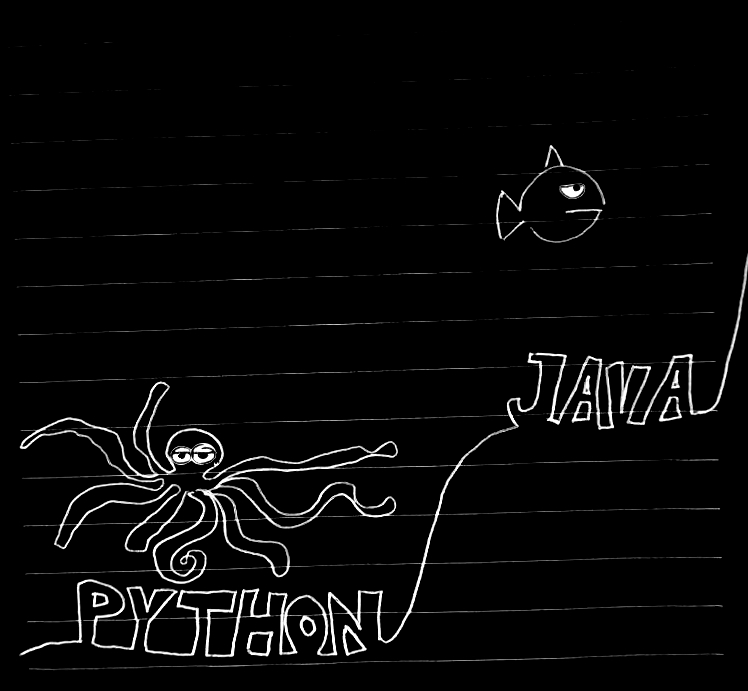 JAVA
PYTHON